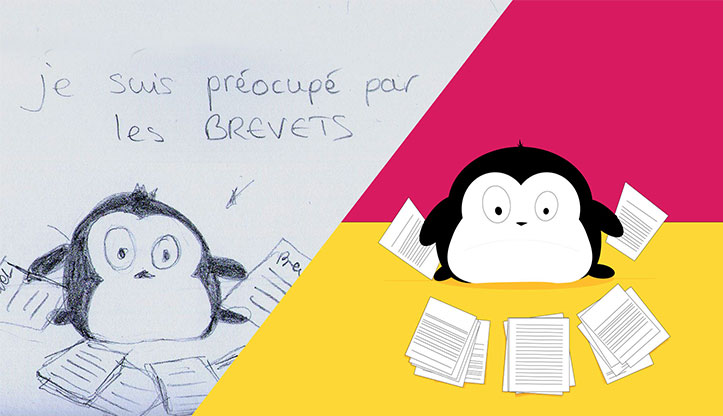 je suis préocupé par
les BREVETS